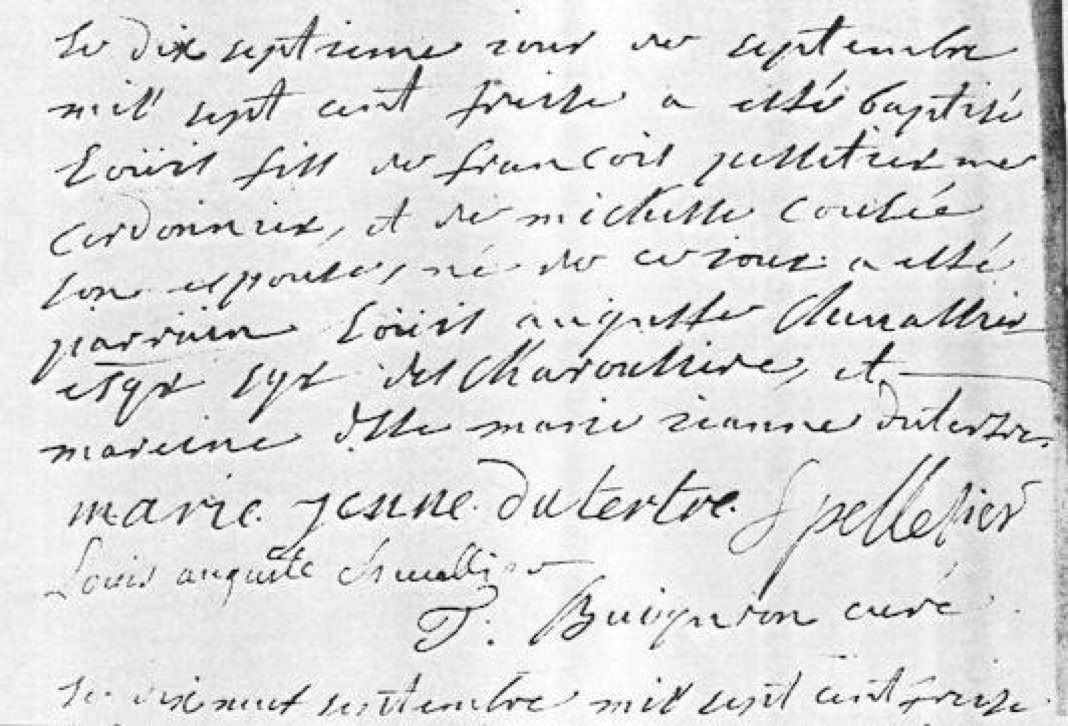 Le dix septieme iour de septembre
mil sept cent treise a esté baptisé
Loüis fils de françois pelletier me
cordonnier, et de michelle coulée
son espouse, né de ce iour a esté
parrain Loüis auguste Chevallier
esqr syr des Charoulliere, et
mareine dlle marie ieanne dutertre.
marie jenne dutertre f pelletier
Louis auguste Chevallier
Buignon curé
Le dix neuf septembre mil sept cent treise